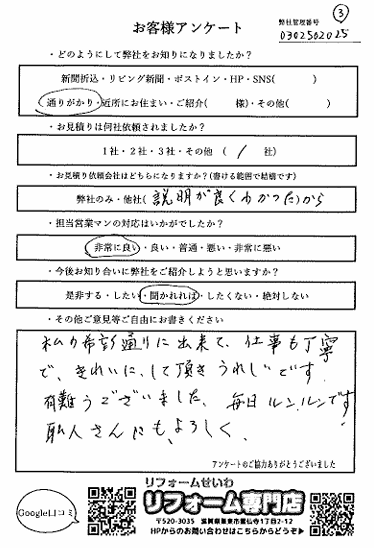 ③
お客様アンケート
弊社管理番号
0302502025
・どのようにして弊社をお知りになりましたか？
新聞折込・リビング新聞・ポストイン・HP・SNS(　　　)
通りがかり・近所にお住まい・ご紹介(　　　様)・その他(　　　)
・お見積りは何社依頼されましたか？
1社・2社・3社・その他　(　/　社)
・お見積り依頼会社はどちらになりますか？(書ける範囲で結構です)
弊社のみ・他社(説明が良くわかった)から
・担当営業マンの対応はいかがでしたか？
非常に良い・良い・普通・悪い・非常に悪い
・今後お知り合いに弊社をご紹介しようと思いますか？
是非する・したい・聞かれれば・したくない・絶対しない
・その他ご意見等ご自由にお書きください
私の希望通りに出来て、仕事も丁寧
で、きれいに、して頂きうれしいです。
有難うございました、毎日ルンルンです!
職人さんにも、よろしく、
アンケートのご協力ありがとうございました
Google口コミ
リフォームせいわ
リフォーム専門店
〒520-3035　滋賀県栗東市霊仙寺1丁目2-12
HPからのお問い合わせはこちらからどうぞ▶